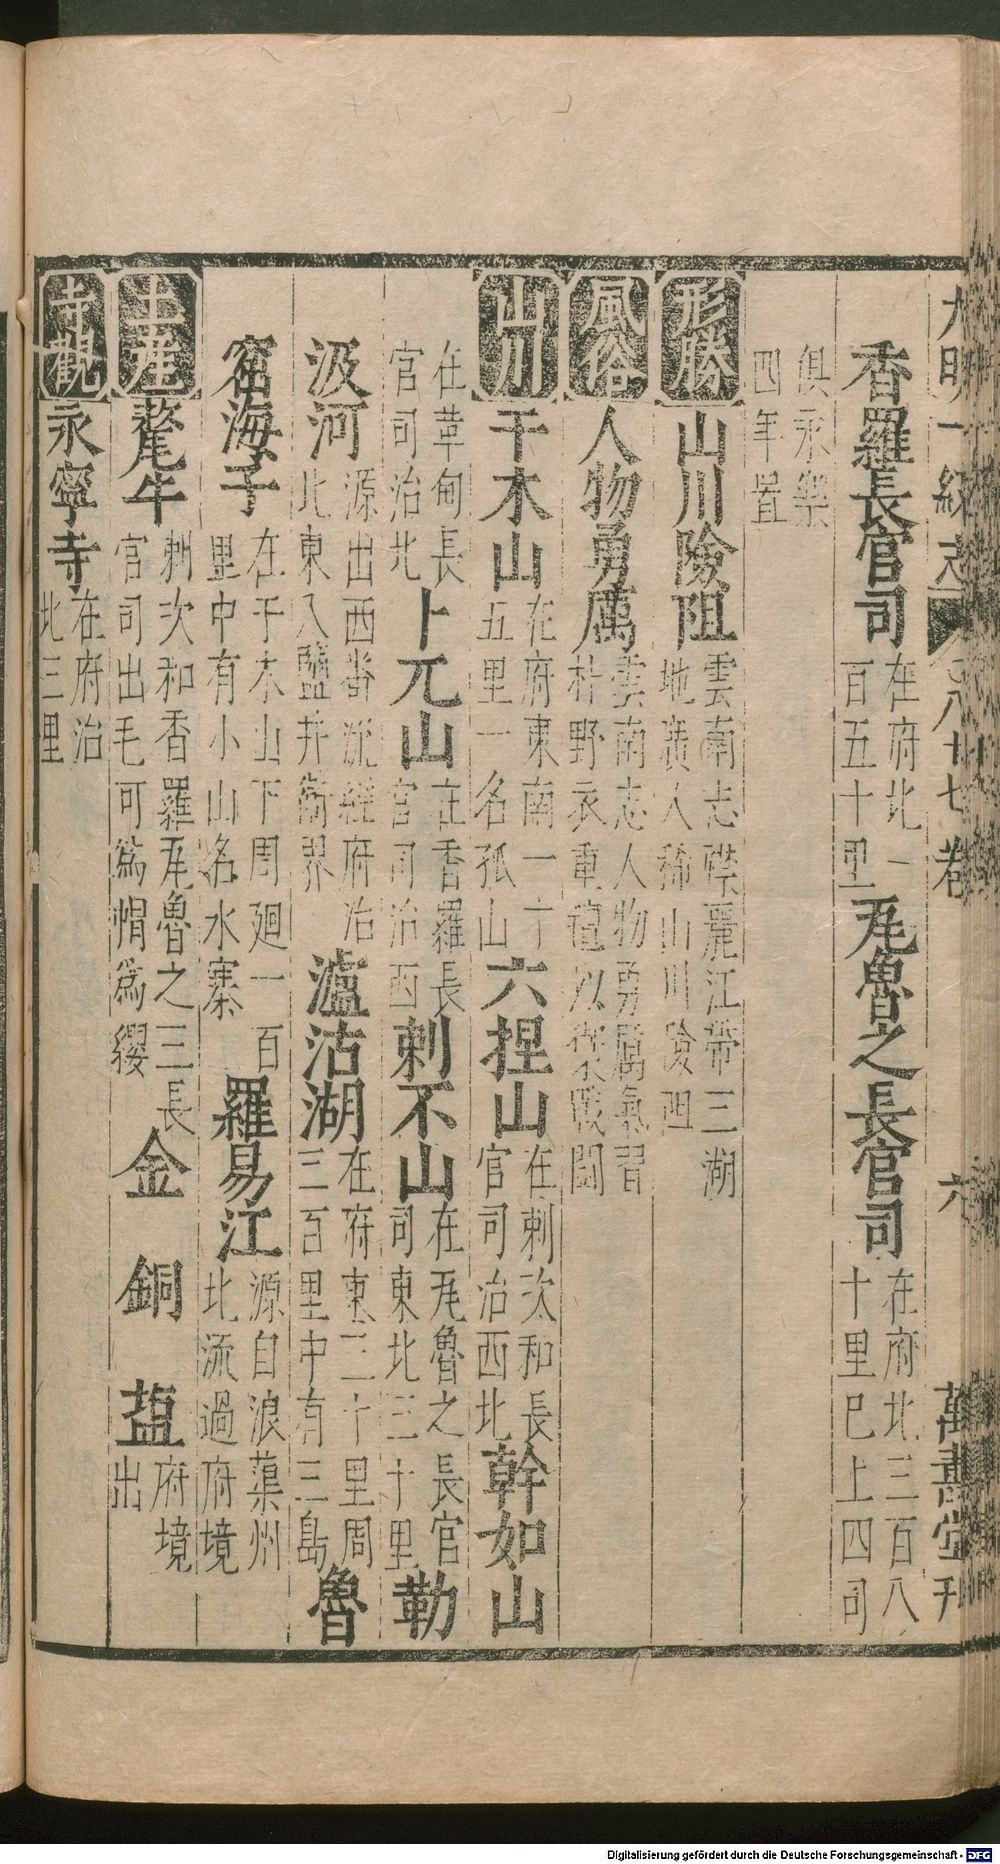 大明一統志 八十七卷 六 萬壽堂刊
香羅長官司 在府北一百五十里 瓦魯之長官司 在府北三百八十里已上四司
俱永樂四年置
形勝 山川險阻 雲南志襟麗江帶三湖地廣人稀山川險阻
風俗 人物勇厲 雲南志人物勇厲氣習朴野衣重氊以禦戰鬪
山川 干木山 在府東南一十五里一名孤山 六捏山 在剌次和長官司治西北 幹如山
在革甸長官司治北 卜兀山 在香羅長官司治西 剌不山 在瓦魯之長官司東北三十里 勒
汲河 源出西番流經府治北東入鹽井衛界 瀘沽湖 在府東三十里周三百里中有三島 魯
窟海子 在干木山下周廻一百里中有小山名水寨 羅易江 源自浪蕖州北流過府境
土產 氂牛 剌次和香羅瓦魯之三長官司出毛可爲帽爲纓 金 銅 盐 府境出
寺觀 永寧寺 在府治北三里
Digitalisierung gefördert durch die Deutsche Forschungsgemeinschaft - DFG